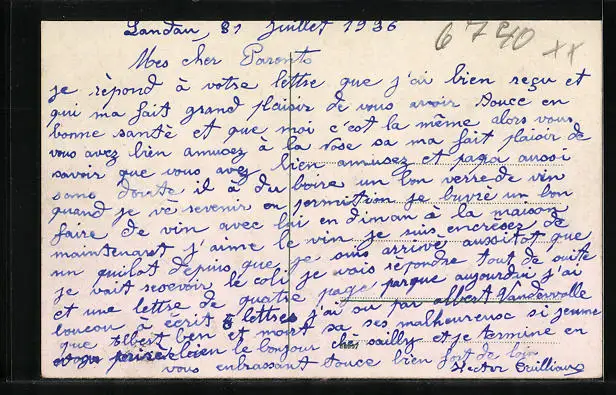 Landau, 31 Juillet 1936
6740 xx
Mes cher Parents
je répond à votre lettre que j'ai bien reçu et
qui ma fait grand plaisir de vous avoir touce en
bonne santé et que moi c'est la même alors vous
vous avez bien amusez à la rose sa ma fait plaisir de
savoir que vous avez bien amusez et papa aussi
sans doute il à du boire un bon verre de vin
quand je vè revenir en permition je buvré un bon
faire de vin avec lui en diman à la maison
maintenant j'aime le vin je suis encresez de
un depuis que je suis arrivé aussitot que
je vait resevoir le coli je vais répondre tout de suite
et une lettre de quatre page parque aujourdui j'ai
à écrit 5 lettres j'ai su par albert Vandervolle
que albert ben et mort sa ses malheureuse si jeune
bien le bonjour sailly et je termine en
vous enbrassant touce bien fort de loin
Hector